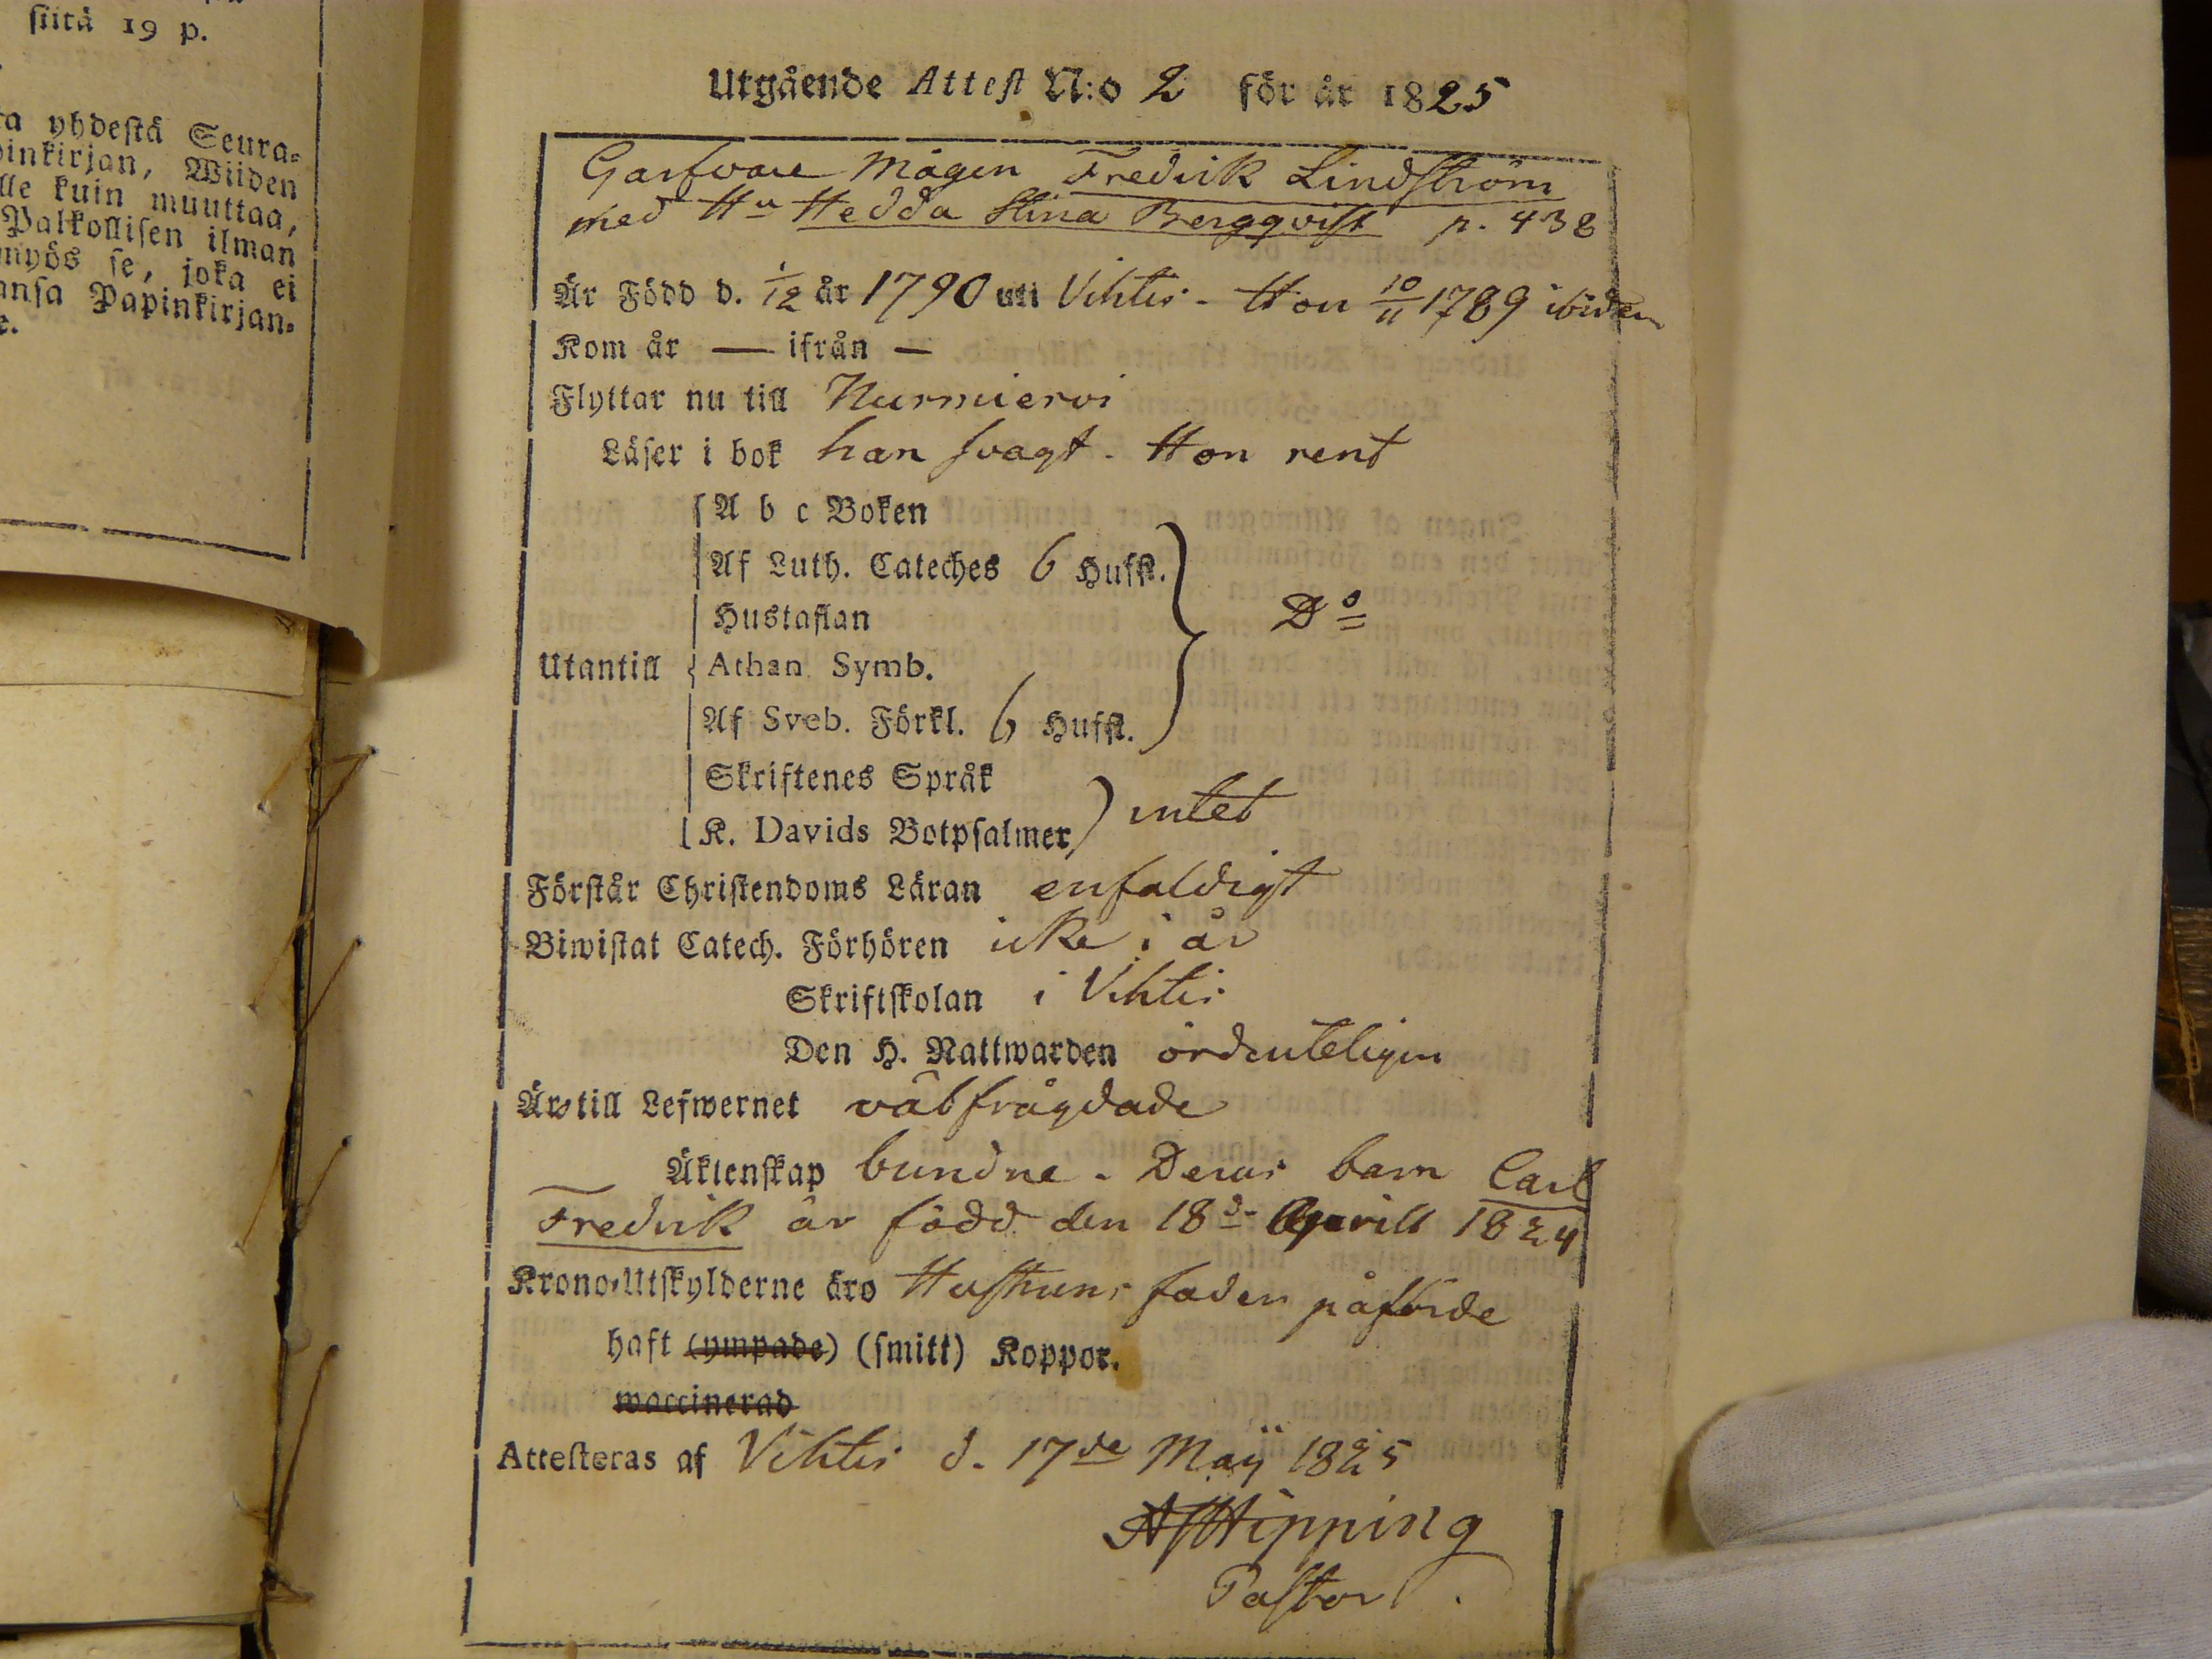 siitä 19 p.
ta yhdestä Seura-
pinkirjan, Wiiden
lle kuin muuttaa,
Palkollisen ilman
myös se, joka ei
ansa Papinkirjan-
e.
Utgående Attest N:o 2 för år 1825
Garfvare Mågen Fredrik Lindström
med Hu Hedda Stina Bergqvist p. 438
Är Född d. 1/12 år 1790 uti Vihtis - Hon 10/11 1789 ibidem
Kom år — ifrån —
Flyttar nu till Nurmiervi
Läser i bok han svagt. Hon rent
A b c Boken
Af Luth. Cateches 6 Hufst.
Hustaflan Do
Utantill Athan. Symb.
Af Sveb. Förkl. 6 Hufst.
Skriftenes Språk
K. Davids Botpsalmer intet
Förstår Christendoms Läran enfaldigt
Biwistat Catech. Förhören icke i år
Skriftskolan i Vihtis
Den H. Nattwarden ordenteligen
Äro till Lefwernet välfrägdade
Äktenskap bundne. Deras barn Carl
Fredrik är född den 18de Aprill 1824
Krono-Utskylderne äro Hustruns fader påförde
haft (ympade) (smitt) Koppor.
waccinerad
Attesteras af Vihtis d. 17de Maÿ 1825
AJHipping
Pastor.